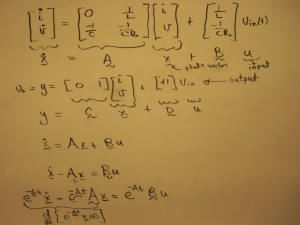 [i̇ v̇] = [0 1/L -1/C 1/CR₀] [i v] + [1/L 1/CR₀] Vin(t)
ẋ = A x + B u
state vector input
v₀ = y = [0 1] [i v] + [+1] Vin ← output
y = C x + D u
ẋ = Ax + Bu
ẋ - Ax = Bu
e^-At ẋ - e^-At Ax = e^-At Bu
d/dt [e^-At x(t)]